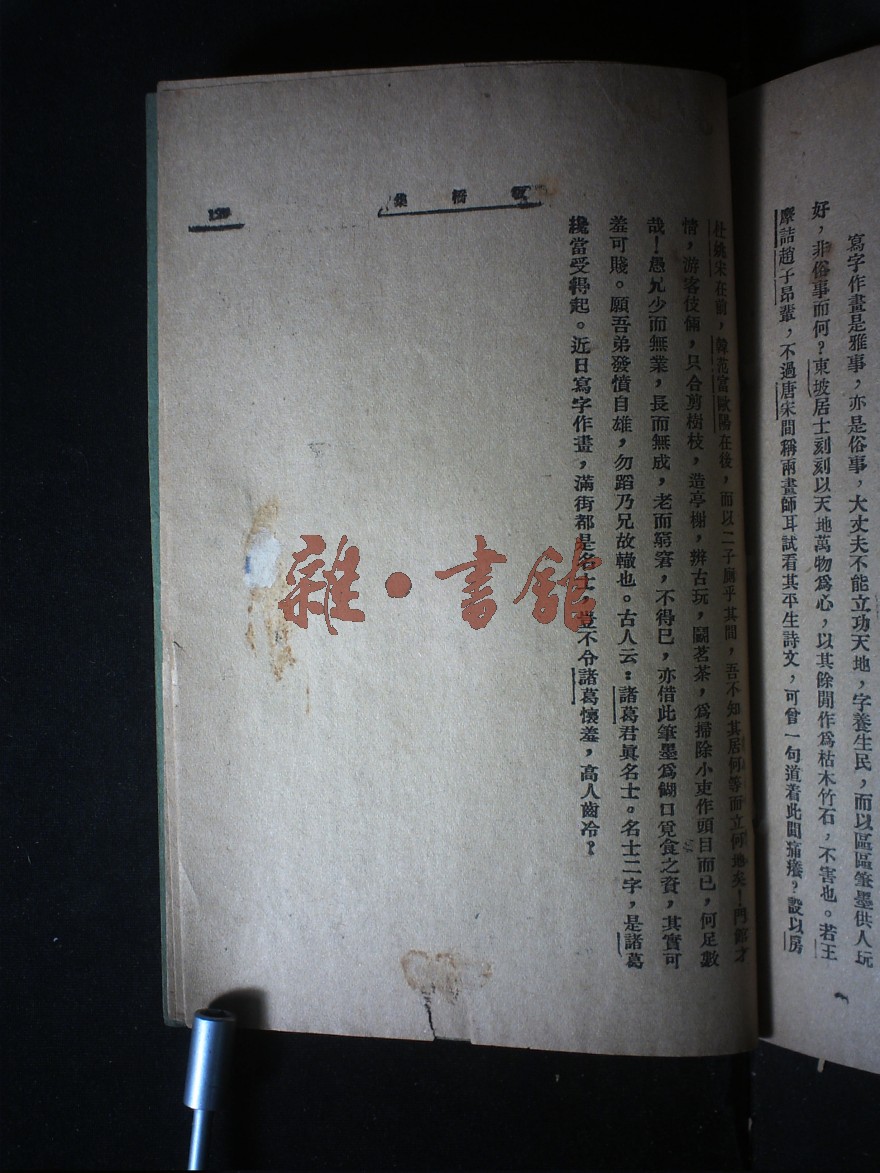 寫字作畫是雅事，亦是俗事，大丈夫不能立功天地，字養生民，而以區區筆墨供人玩
好，非俗事而何？東坡居士刻刻以天地萬物爲心，以其餘閒作爲枯木竹石，不害也。若王
摩詰趙子昂輩，不過唐宋間稱兩畫師耳試看其平生詩文，可曾一句道着此間痛癢？設以房
杜姚宋在前，韓范富歐陽在後，而以二子廁乎其間，吾不知其居何等而立何地矣！門館才
情，游客伎倆，只合剪樹枝，造亭榭，辨古玩，鬭茗茶，爲掃除小吏作頭目而已，何足數
哉！愚兄少而無業，長而無成，老而窮窘，不得已，亦借此筆墨爲餬口覓食之資，其實可
羞可賤。願吾弟發憤自雄，勿蹈乃兄故轍也。古人云：諸葛君眞名士。名士二字，是諸葛
纔當受得起。近日寫字作畫，滿街都是名士，豈不令諸葛懷羞，高人齒冷？
橋集
雜·書館